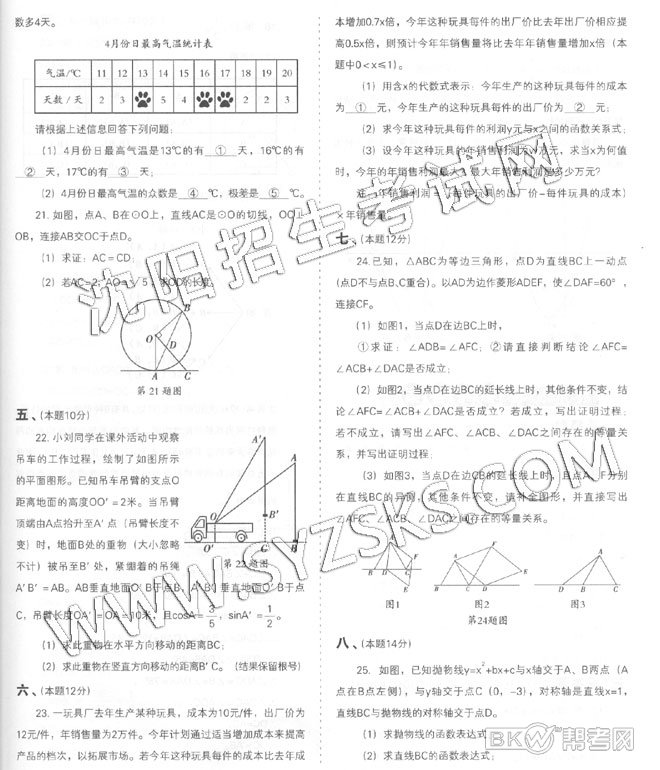 数多4天。
4月份日最高气温统计表
气温/℃ 11 12 13 14 15 16 17 18 19 20
天数/天 2 3 5 4 2 2 3
请根据上述信息回答下列问题：
(1) 4月份日最高气温是13℃的有 ① 天，16℃的有
② 天，17℃的有 ③ 天；
(2) 4月份日最高气温的众数是 ④ ℃，极差是 ⑤ ℃。
21. 如图，点A、B在⊙O上，直线AC是⊙O的切线，OC⊥
OB，连接AB交OC于点D。
(1) 求证：AC=CD；
(2) 若AC=2，AO=√5，求OD的长度。
A B O D A C
第21题图
五、(本题10分)
22. 小刘同学在课外活动中观察
吊车的工作过程，绘制了如图所示
的平面图形。已知吊车吊臂的支点O
距离地面的高度OO′=2米。当吊臂
顶端由A点抬升至A′点（吊臂长度不
变）时，地面B处的重物（大小忽略
不计）被吊至B′处，紧绷着的吊绳
A′B′=AB。AB垂直地面O′B于点B，A′B′垂直地面O′B于点
C，吊臂长度OA′=OA=10米，且cosA=3/5，sinA′=1/2。
(1) 求此重物在水平方向移动的距离BC；
(2) 求此重物在竖直方向移动的距离B′C。（结果保留根号）
A′ A O B′ O′ C B
第22题图
六、(本题12分)
23. 一玩具厂去年生产某种玩具，成本为10元/件，出厂价为
12元/件，年销售量为2万件。今年计划通过适当增加成本来提高
产品的档次，以拓展市场。若今年这种玩具每件的成本比去年成
本增加0.7x倍，今年这种玩具每件的出厂价比去年出厂价相应提
高0.5x倍，则预计今年年销售量将比去年年销售量增加x倍（本
题中0＜x≤1）。
(1) 用含x的代数式表示：今年生产的这种玩具每件的成本
为 ① 元，今年生产的这种玩具每件的出厂价为 ② 元；
(2) 求今年这种玩具每件的利润y元与x之间的函数关系式；
(3) 设今年这种玩具的年销售利润为w万元，求当x为何值
时，今年的年销售利润最大？最大年销售利润是多少万元？
注：年销售利润=（每件玩具的出厂价-每件玩具的成本）
×年销售量。
七、(本题12分)
24. 已知，△ABC为等边三角形，点D为直线BC上一动点
(点D不与点B、C重合)。以AD为边作菱形ADEF，使∠DAF=60°，
连接CF。
(1) 如图1，当点D在边BC上时，
①求证：∠ADB=∠AFC；②请直接判断结论∠AFC=
∠ACB+∠DAC是否成立？
(2) 如图2，当点D在边BC的延长线上时，其他条件不变，结
论∠AFC=∠ACB+∠DAC是否成立？若成立，写出证明过程；
若不成立，请写出∠AFC、∠ACB、∠DAC之间存在的等量关
系，并写出证明过程；
(3) 如图3，当点D在边CB的延长线上时，且点A、F分别
在直线BC的异侧，其他条件不变，请补全图形，并直接写出
∠AFC、∠ACB、∠DAC之间存在的等量关系。
图1 图2 图3
第24题图
八、(本题14分)
25. 如图，已知抛物线y=x²+bx+c与x轴交于A、B两点（A
点在B点左侧），与y轴交于点C（0，-3），对称轴是直线x=1，
直线BC与抛物线的对称轴交于点D。
(1) 求抛物线的函数表达式；
(2) 求直线BC的函数表达式；
沈阳招生考试网
WWW.SYZSKS.COM
BKW 帮考网